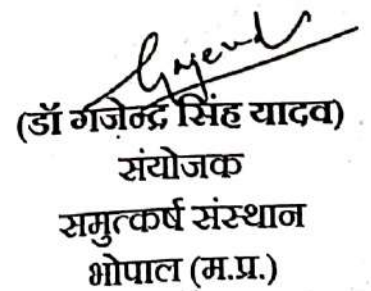 Gajend
(डॉ गजेन्द्र सिंह यादव)
संयोजक
समुत्कर्ष संस्थान
भोपाल (म.प्र.)